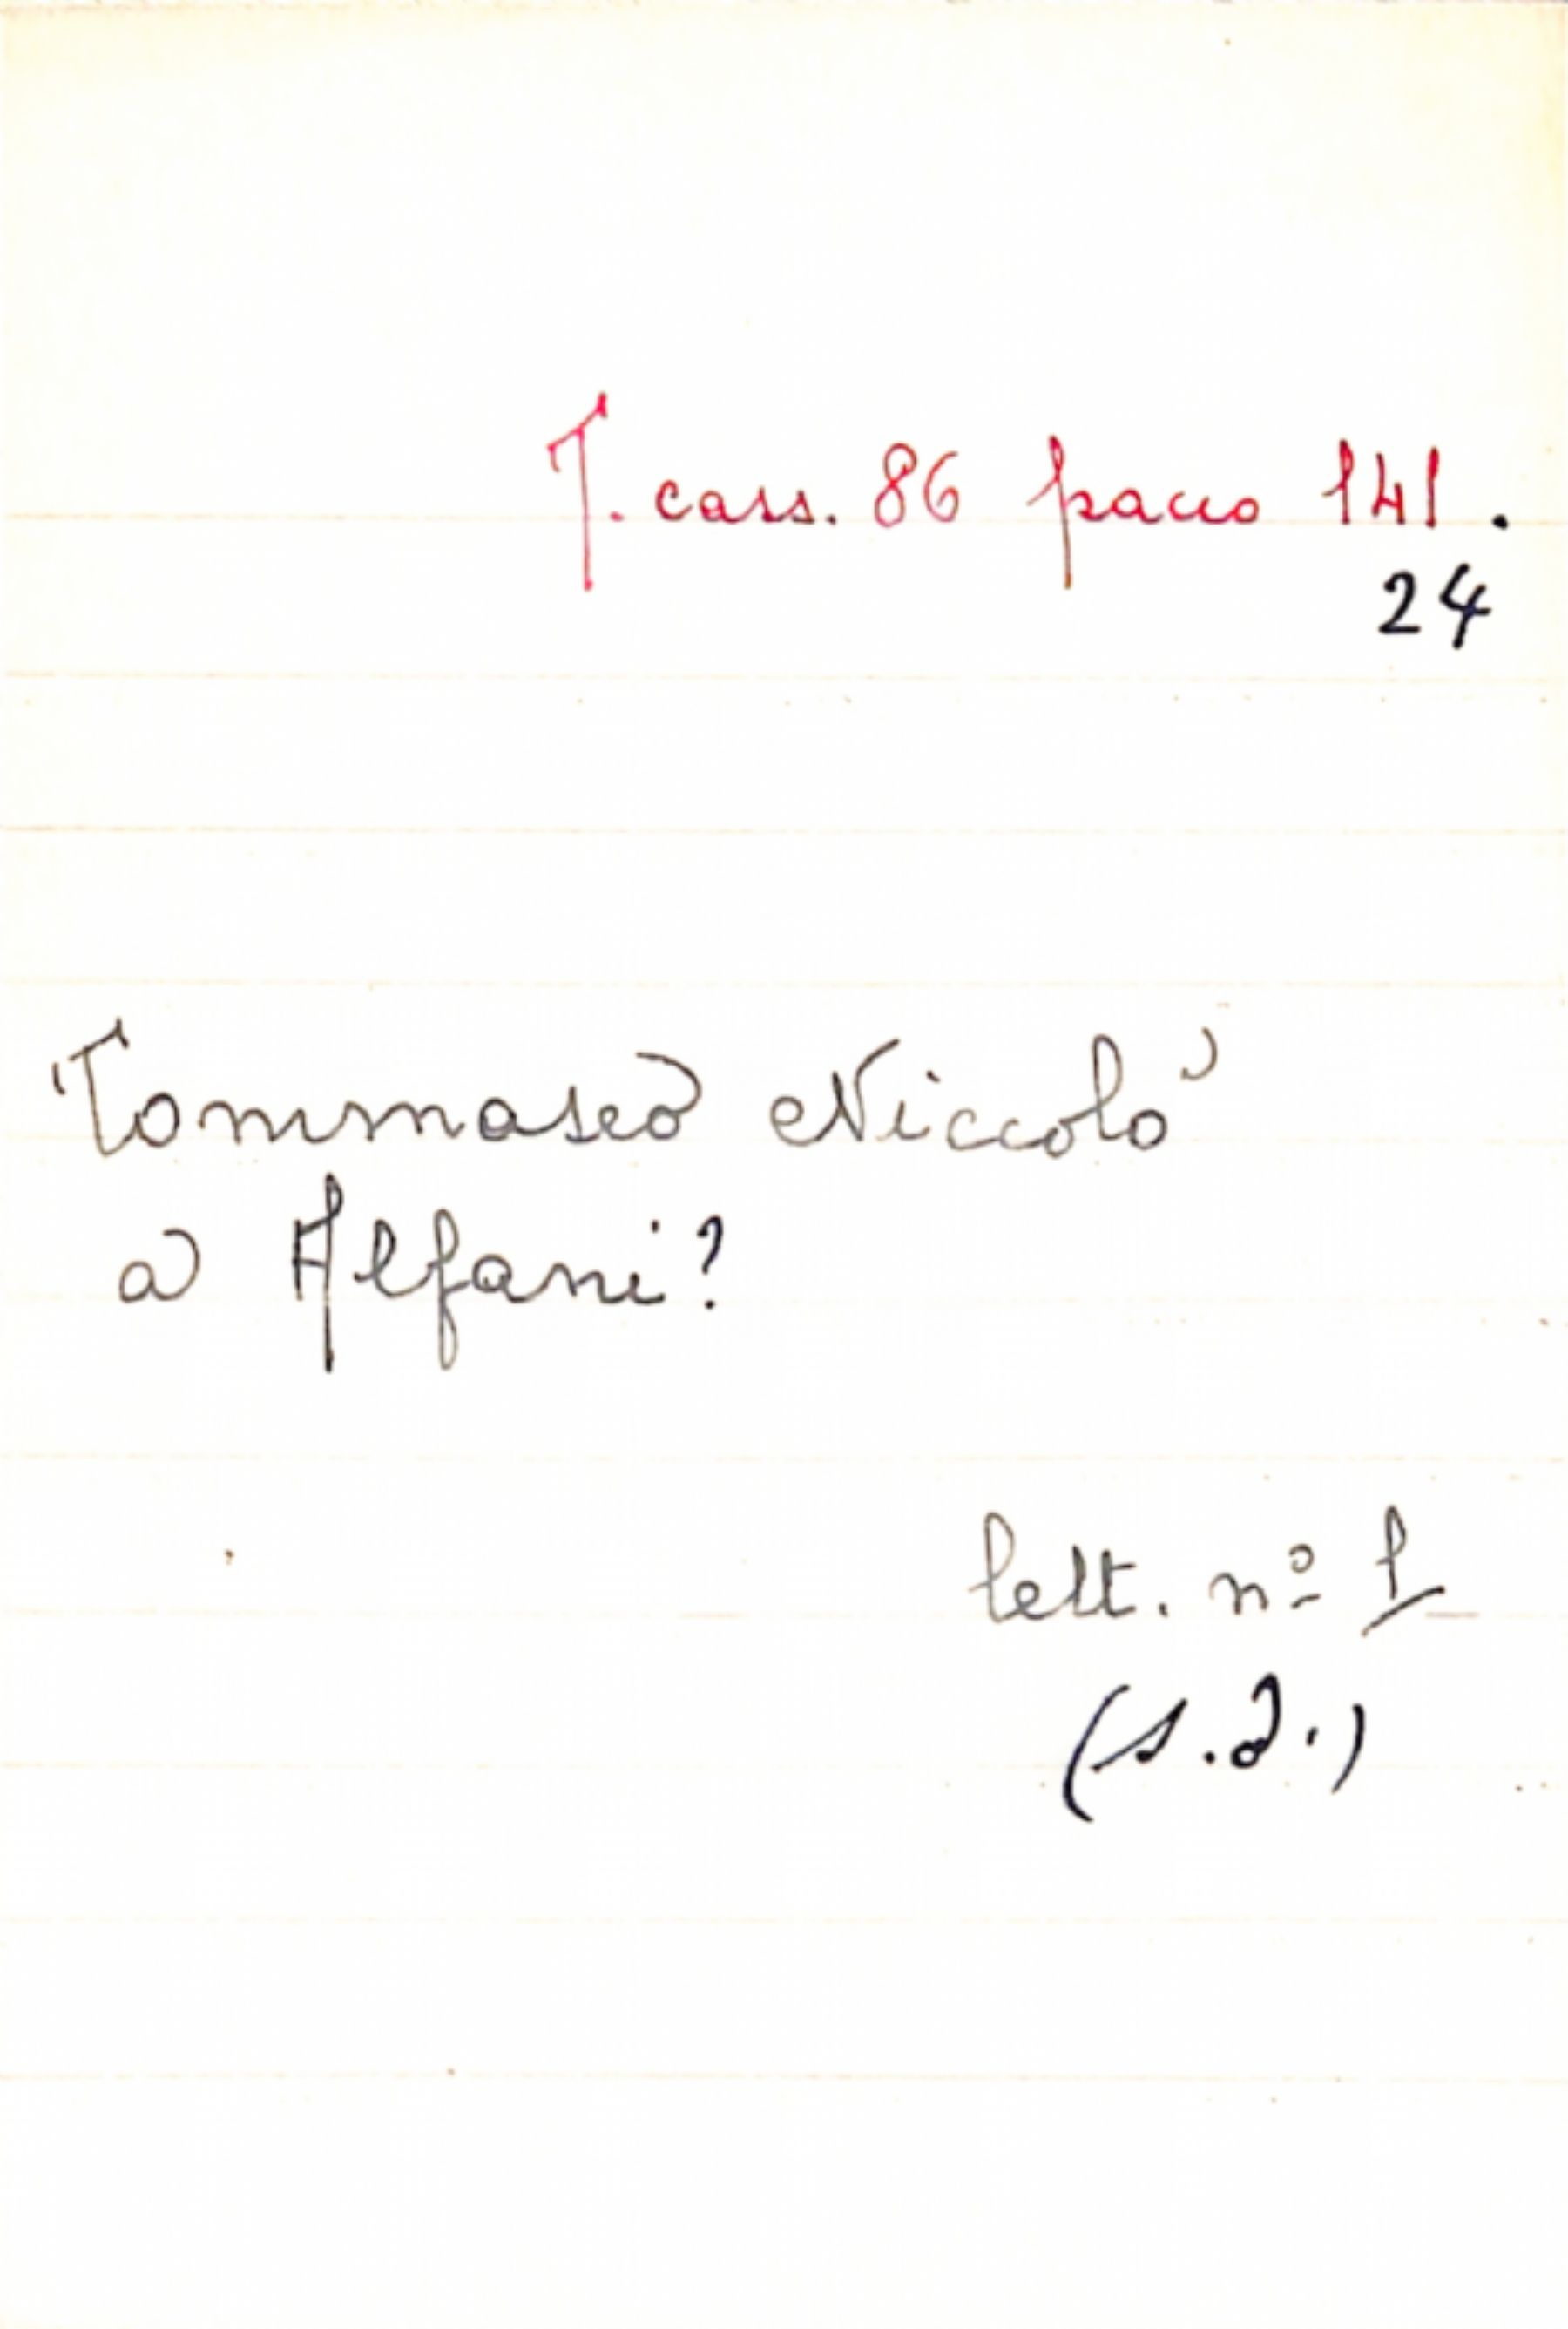 T. cass. 86 pacco 141.
24
Tommaseo Niccolò
a Alfani?
lett. nº 1
(s.d.)